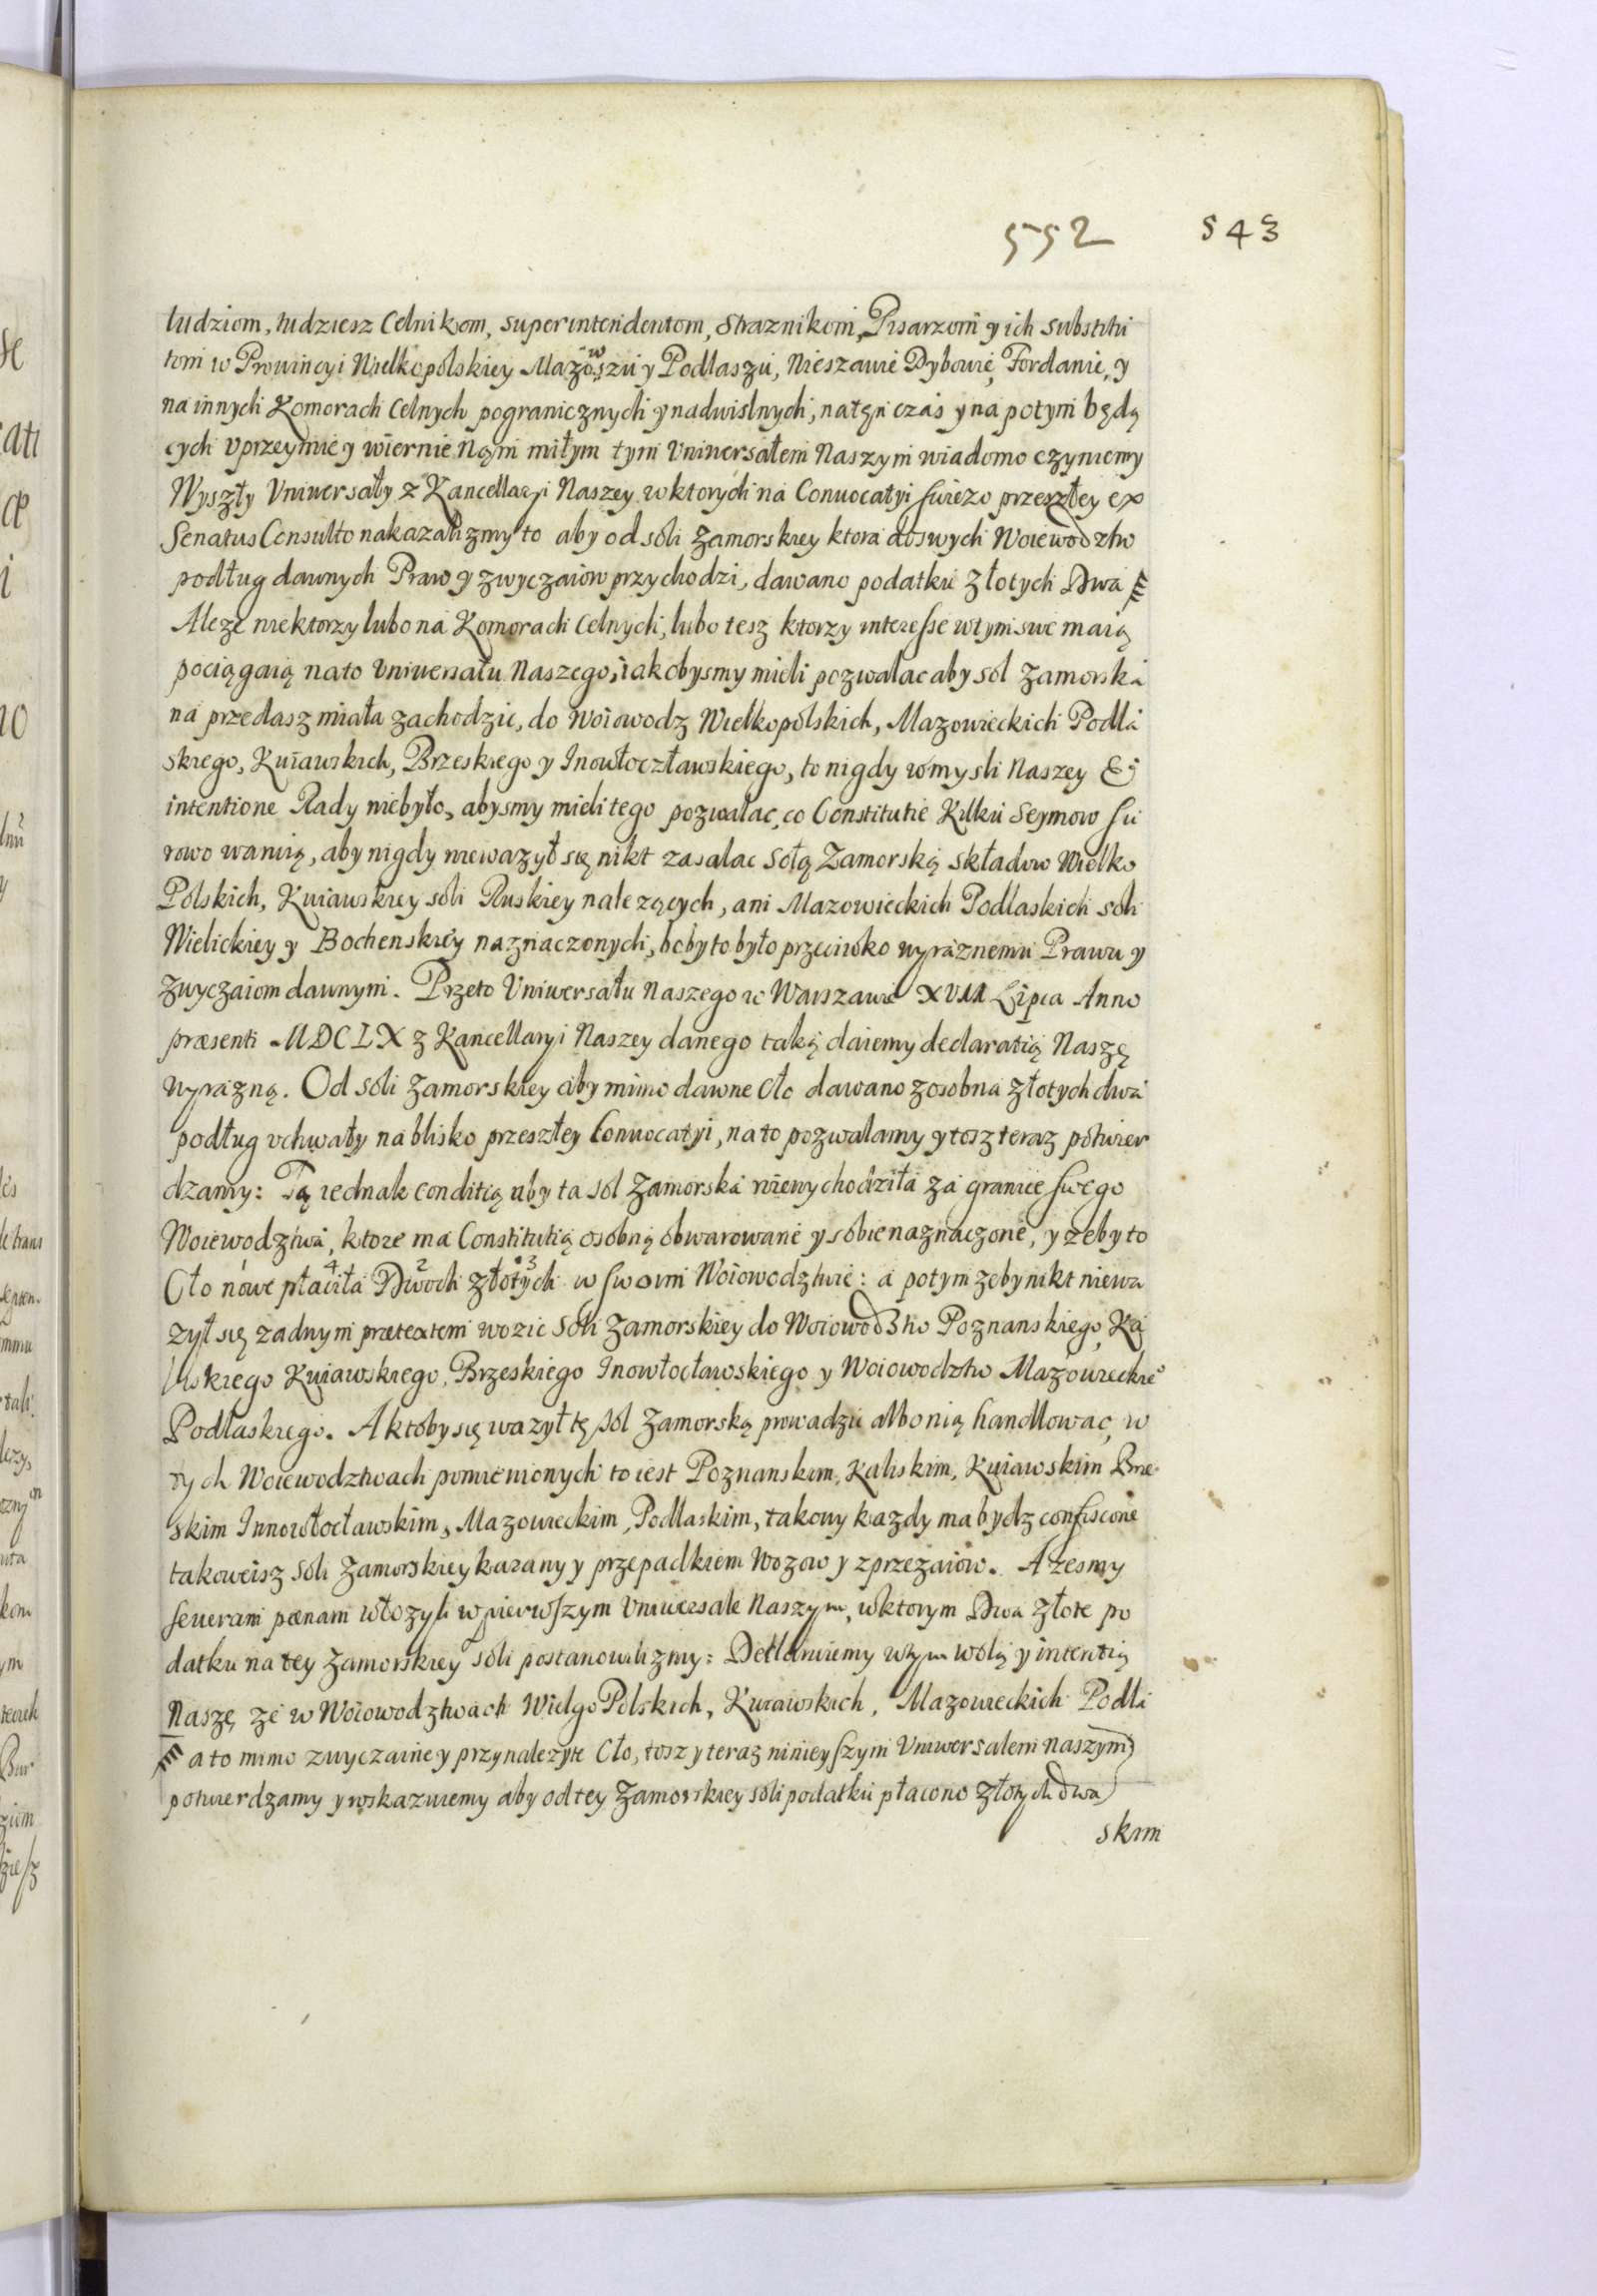 552 543
ludziom, tudziesz Celnikom, superintendentom, Straznikom, Pisarzom y ich substitu
tom w Prowincyi Wielkopolskiey Mazowszu y Podlaszu, Nieszawie Dybowie, Fordanie, y
na innych Komorach Celnych pogranicznych y nadwislnych, na tęn czas y na potym będą
cych vprzeymie y wiernie Nąm miłym tym Vniwersałem Naszym wiadomo czyniemy
Wyszły Vniwersały z Kancellaryi Naszey w ktorych na Conuocatyi swiezo przeszłey ex
Senatus Consulto nakazalizmy to aby od soli Zamorskiey ktora do swych Woiewodztw
podług dawnych Praw y zwyczaiow przychodzi, dawano podatku złotych Dwa
Ale ze niektorzy lubo na Komorach Celnych, lubo tesz ktorzy interesse w tym swe maią
pociągaią na to Vniwersału Naszego, iakobysmy mieli pozwalac aby sol Zamorska
na przedasz miała zachodzic, do Woiowodz Wielkopolskich, Mazowieckich Podla
skiego, Kuiawskich, Brzeskiego y Inowłoczławskiego, to nigdy w mysli Naszey Et
intentione Rady niebyło, abysmy mieli tego pozwalac, co Constitutie Kilku Seymow su
rowo warnią, aby nigdy niewazył się nikt zasalac Solą Zamorską składow Wielko
Polskich, Kuiawskiey soli Ruskiey nalezących, ani Mazowieckich Podlaskich soli
Wielickiey y Bochenskiey naznaczonych, bo by to było przeciwko wyraznemu Prawu y
zwyczaiom dawnym. Przeto Vniwersału Naszego w Warszawie XVII Lipca Anno
præsenti MDCLX z Kancellaryi Naszey danego taką daiemy declaratią Naszę
wyrazną. Od soli Zamorskiey aby mimo dawne Cło dawano z osobna złotych dwa
podług vchwały na blisko przeszłey Conuocatyi, na to pozwalamy y tosz teraz potwier
dzamy: Tą iednak conditią aby ta sol Zamorska niewychodziła za granice swego
Woiewodztwa, ktore ma Constitutią osobną obwarowane y sobie naznaczone, y zeby to
Cło nowe płaciła 4 Dwoch 2 złotych 3 w swoim Woiowodztwie: a potym zeby nikt niewa
zył się zadnym prætextem wozic Soli Zamorskiey do Woiowodztw Poznanskiego, Ka
liskiego Kuiawskiego, Brzeskiego Inowłocławskiego y Woiowodztw Mazowieckie°
Podlaskiego. A ktoby się wazył tę sol Zamorską prowadzic albo nią handlowac, w
tych Woiewodztwach pomienionych to iest Poznanskim, Kaliskim, Kuiawskim Brze
skim Innowłocławskim, Mazowieckim, Podlaskim, takowy kazdy ma bydz confiscone
takoweisz soli Zamorskiey karany y przepadkiem Wozow y zprzezaiow. A zesmy
seueram pœnam włozyli w pierwszym Vniwersale Naszym, w ktorym Dwa złote po
datku na tey Zamorskiey soli postanowilizmy: Declaruiemy w tym wolą y intentią
Naszę ze w Woiowodztwach WielgoPolskich, Kuiawskich, Mazowieckich Podla
a to mimo zwyczaine y przynalezyte Cło, tosz y teraz ninieyszym Vniwersalem naszym
potwierdzamy y roskazuiemy aby od tey Zamorskiey soli podatku płacono złotych dwa
skim